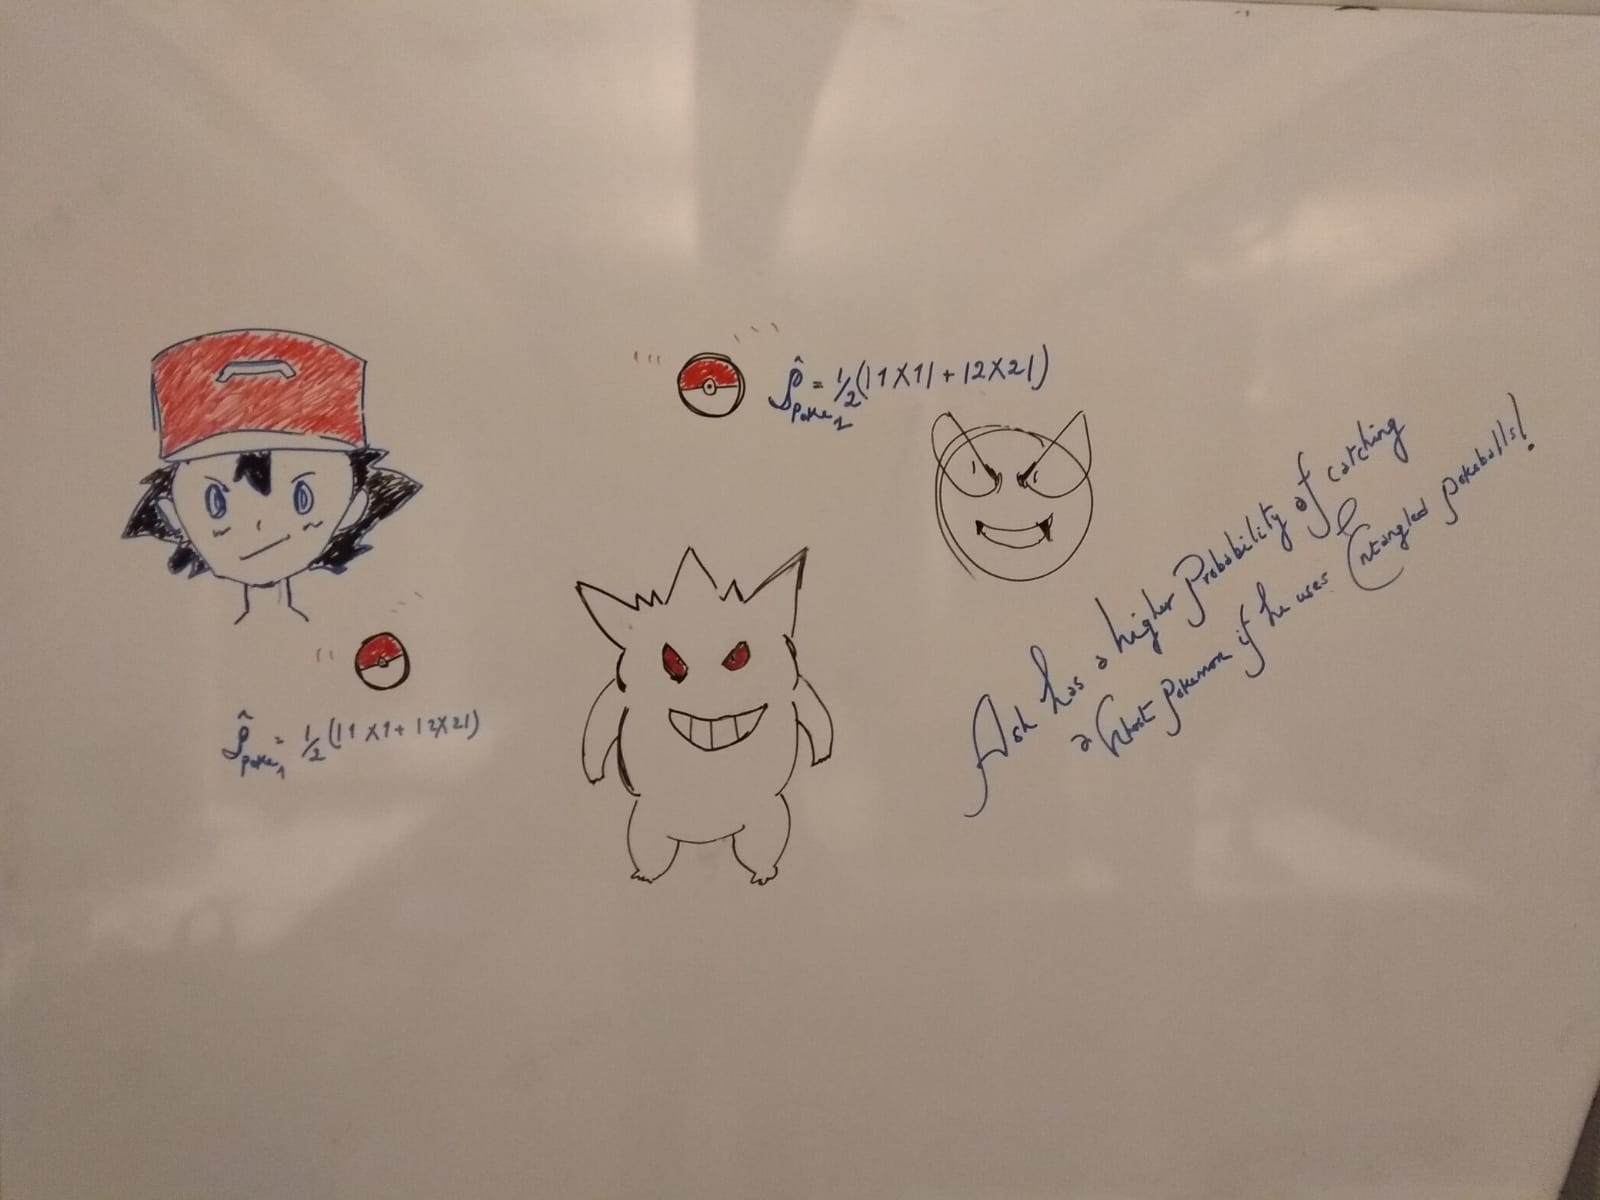 ρ̂ Poke₂ = 1/2(|1X1| + |2X2|)
ρ̂ Poke₁ = 1/2(|1X1+|2X2|)
Ash has a higher Probability of catching
a Ghost Pokemon if he uses Entangled Pokeballs!